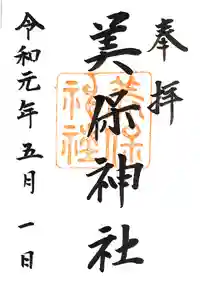 奉拝
美保神社
美保
神社
令和元年五月一日